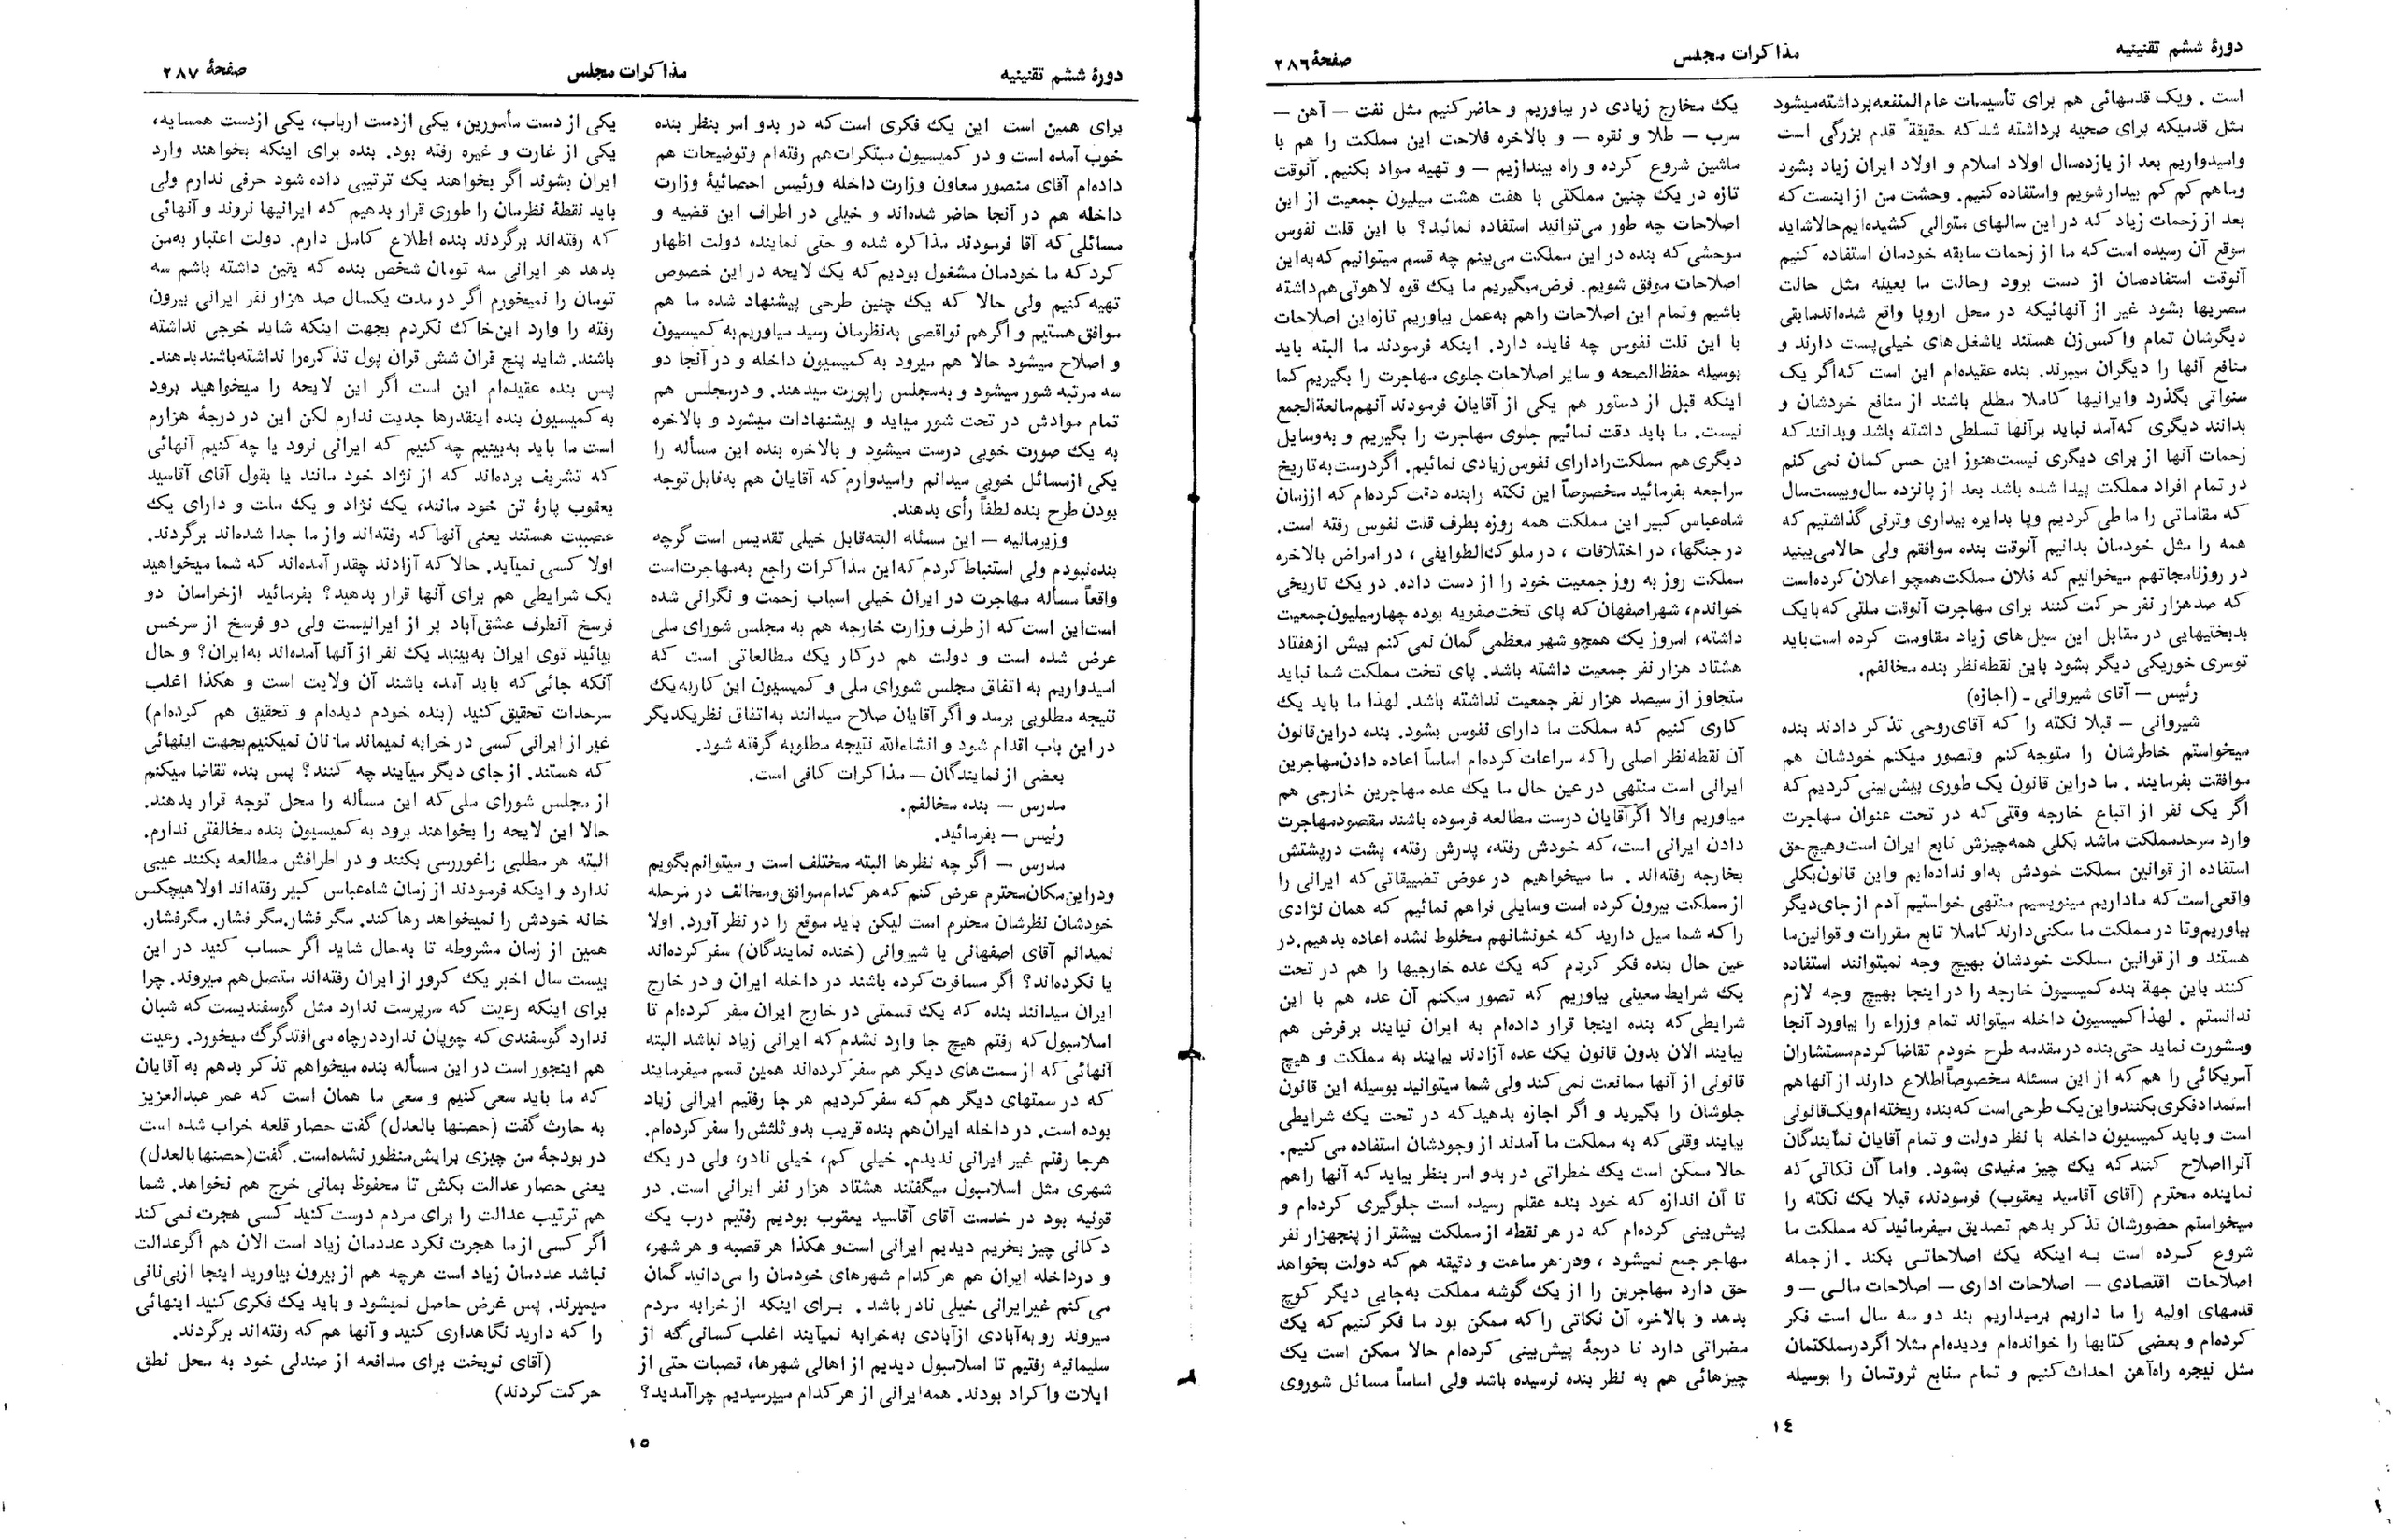 دورهٔ ششم تقنینیه
مذاکرات مجلس
صفحهٔ ۲۸۶
است . ویک قدمهائی هم برای تأسیسات عام‌المنفعه برداشته میشود
مثل قدمیکه برای صحیه برداشته شد که حقیقةً قدم بزرگی است
وامیدواریم بعد از یازده سال اولاد اسلام و اولاد ایران زیاد بشود
وماهم کم کم بیدار شویم واستفاده کنیم. وحشت من از اینست که
بعد از زحمات زیاد که در این سالهای متوالی کشیده‌ایم حالا شاید
موقع آن رسیده است که ما از زحمات سابقه خودمان استفاده کنیم
آنوقت استفاده‌مان از دست برود وحالت ما بعینه مثل حالت
مصریها بشود غیر از آنهائیکه در محل اروپا واقع شده‌اند مابقی
دیگرشان تمام واکس‌زن هستند یا شغل های خیلی پست دارند و
منافع آنها را دیگران میبرند. بنده عقیده‌ام این است که اگر یک
سنواتی بگذرد وایرانیها کاملا مطلع باشند از منافع خودشان و
بدانند دیگری که آمد نباید برآنها تسلطی داشته باشد وبدانند که
زحمات آنها از برای دیگری نیست هنوز این حس گمان نمی کنم
در تمام افراد مملکت پیدا شده باشد بعد از پانزده سال و بیست سال
که مقاماتی را ما طی کردیم وپا بدایره بیداری وترقی گذاشتیم که
همه را مثل خودمان بدانیم آنوقت بنده موافقم ولی حالا می‌بینید
در روزنامجاتهم میخوانیم که فلان مملکت همچو اعلان کرده است
که صد هزار نفر حرکت کنند برای مهاجرت آنوقت ملتی که بایک
بدبختیهایی در مقابل این سیل های زیاد مقاومت کرده است باید
توسری خور یکی دیگر بشود باین نقطه نظر بنده مخالفم.
رئیس — آقای شیروانی ـ (اجازه)
شیروانی — قبلا نکته را که آقای روحی تذکر دادند بنده
میخواستم خاطرشان را متوجه کنم وتصور میکنم خودشان هم
موافقت بفرمایند . ما در این قانون یک طوری پیش بینی کردیم که
اگر یک نفر از اتباع خارجه وقتی که در تحت عنوان مهاجرت
وارد سرحد مملکت ما شد بکلی همه چیزش تابع ایران است و هیچ حق
استفاده از قوانین مملکت خودش به‌او نداده‌ایم واین قانون بکلی
واقعی است که ما داریم مینویسیم منتهی خواستیم آدم از جای دیگر
بیاوریم وتا در مملکت ما سکنی دارند کاملا تابع مقررات و قوانین ما
هستند و از قوانین مملکت خودشان بهیچ وجه نمیتوانند استفاده
کنند باین جهة بنده کمیسیون خارجه را در اینجا بهیچ وجه لازم
ندانستم . لهذا کمیسیون داخله میتواند تمام وزراء را بیاورد آنجا
ومشورت نماید حتی بنده در مقدمه طرح خودم تقاضا کردم مستشاران
آمریکائی را هم که از این مسئله مخصوصاً اطلاع دارند از آنها هم
استمداد فکری بکنند و این یک طرحی است که بنده ریخته‌ام و یک قانونی
است و باید کمیسیون داخله با نظر دولت و تمام آقایان نمایندگان
آنرا اصلاح کنند که یک چیز مفیدی بشود. واما آن نکاتی که
نماینده محترم (آقای آقاسید یعقوب) فرمودند، قبلا یک نکته را
میخواستم حضورشان تذکر بدهم تصدیق میفرمائید که مملکت ما
شروع کرده است به اینکه یک اصلاحاتی بکند . از جمله
اصلاحات اقتصادی — اصلاحات اداری — اصلاحات مالی — و
قدمهای اولیه را ما داریم برمیداریم بند دو سه سال است فکر
کرده‌ام و بعضی کتابها را خوانده‌ام ودیده‌ام مثلا اگر در مملکتمان
مثل نیجره راه‌آهن احداث کنیم و تمام منابع ثروتمان را بوسیله
یک مخارج زیادی در بیاوریم و حاضر کنیم مثل نفت — آهن —
سرب — طلا و نقره — و بالاخره فلاحت این مملکت را هم با
ماشین شروع کرده و راه بیندازیم — و تهیه مواد بکنیم. آنوقت
تازه در یک چنین مملکتی با هفت هشت میلیون جمعیت از این
اصلاحات چه طور می‌توانید استفاده نمائید؟ با این قلت نفوس
موحشی که بنده در این مملکت می‌بینم چه قسم میتوانیم که به این
اصلاحات موفق شویم. فرض میگیریم ما یک قوه لاهوتی هم داشته
باشیم وتمام این اصلاحات را هم به‌عمل بیاوریم تازه این اصلاحات
با این قلت نفوس چه فایده دارد. اینکه فرمودند ما البته باید
بوسیله حفظ‌الصحه و سایر اصلاحات جلوی مهاجرت را بگیریم کما
اینکه قبل از دستور هم یکی از آقایان فرمودند آنهم مانعة‌الجمع
نیست. ما باید دقت نمائیم جلوی مهاجرت را بگیریم و به‌وسایل
دیگری هم مملکت را دارای نفوس زیادی نمائیم. اگر درست به تاریخ
مراجعه بفرمائید مخصوصاً این نکته را بنده دقت کرده‌ام که از زمان
شاه‌عباس کبیر این مملکت همه روزه بطرف قلت نفوس رفته است.
در جنگها، در اختلافات ، در ملوک الطوایفی ، در امراض بالاخره
مملکت روز به روز جمعیت خود را از دست داده. در یک تاریخی
خواندم، شهر اصفهان که پای تخت صفریه بوده چهار میلیون جمعیت
داشته، امروز یک همچو شهر معظمی گمان نمی کنم بیش از هفتاد
هشتاد هزار نفر جمعیت داشته باشد. پای تخت مملکت شما نباید
متجاوز از سیصد هزار نفر جمعیت نداشته باشد. لهذا ما باید یک
کاری کنیم که مملکت ما دارای نفوس بشود. بنده در این قانون
آن نقطه نظر اصلی را که مراعات کرده‌ام اساساً اعاده دادن مهاجرین
ایرانی است منتهی در عین حال ما یک عده مهاجرین خارجی هم
میاوریم والا اگر آقایان درست مطالعه فرموده باشند مقصود مهاجرت
دادن ایرانی است، که خودش رفته، پدرش رفته، پشت در پشتش
بخارجه رفته‌اند . ما میخواهیم در عوض تضییقاتی که ایرانی را
از مملکت بیرون کرده است وسایلی فراهم نمائیم که همان نژادی
را که شما میل دارید که خونشانهم مخلوط نشده اعاده بدهیم. در
عین حال بنده فکر کردم که یک عده خارجیها را هم در تحت
یک شرایط معینی بیاوریم که تصور میکنم آن عده هم با این
شرایطی که بنده اینجا قرار داده‌ام به ایران نیایند بر فرض هم
بیایند الان بدون قانون یک عده آزادند بیایند به مملکت و هیچ
قانونی از آنها ممانعت نمی کند ولی شما میتوانید بوسیله این قانون
جلوشان را بگیرید و اگر اجازه بدهید که در تحت یک شرایطی
بیایند وقتی که به مملکت ما آمدند از وجودشان استفاده می کنیم.
حالا ممکن است یک خطراتی در بدو امر بنظر بیاید که آنها را هم
تا آن اندازه که خود بنده عقلم رسیده است جلوگیری کرده‌ام و
پیش‌بینی کرده‌ام که در هر نقطه از مملکت بیشتر از پنجهزار نفر
مهاجر جمع نمیشود ، ودر هر ساعت و دقیقه هم که دولت بخواهد
حق دارد مهاجرین را از یک گوشه مملکت به‌جایی دیگر کوچ
بدهد و بالاخره آن نکاتی را که ممکن بود ما فکر کنیم که یک
مضراتی دارد تا درجهٔ پیش‌بینی کرده‌ام حالا ممکن است یک
چیزهائی هم به نظر بنده نرسیده باشد ولی اساساً مسائل شوروی
۱٤
دورهٔ ششم تقنینیه
مذاکرات مجلس
صفحهٔ ۲۸۷
برای همین است این یک فکری است که در بدو امر بنظر بنده
خوب آمده است و در کمیسیون مبتکرات هم رفته‌ام وتوضیحات هم
داده‌ام آقای منصور معاون وزارت داخله ورئیس احصائیهٔ وزارت
داخله هم در آنجا حاضر شده‌اند و خیلی در اطراف این قضیه و
مسائلی که آقا فرمودند مذاکره شده و حتی نماینده دولت اظهار
کرد که ما خودمان مشغول بودیم که یک لایحه در این خصوص
تهیه کنیم ولی حالا که یک چنین طرحی پیشنهاد شده ما هم
موافق هستیم و اگر هم نواقصی به‌نظرمان رسید میاوریم به کمیسیون
و اصلاح میشود حالا هم میرود به کمیسیون داخله و در آنجا دو
سه مرتبه شور میشود و به‌مجلس راپورت میدهند. و در مجلس هم
تمام موادش در تحت شور میاید و پیشنهادات میشود و بالاخره
به یک صورت خوبی درست میشود و بالاخره بنده این مسأله را
یکی از مسائل خوبی میدانم وامیدوارم که آقایان هم به‌قابل توجه
بودن طرح بنده لطفاً رأی بدهند.
وزیرمالیه — این مسئله البته قابل خیلی تقدیس است گرچه
بنده نبودم ولی استنباط کردم که این مذاکرات راجع به‌مهاجرت است
واقعاً مسأله مهاجرت در ایران خیلی اسباب زحمت و نگرانی شده
است این است که از طرف وزارت خارجه هم به مجلس شورای ملی
عرض شده است و دولت هم در کار یک مطالعاتی است که
امیدواریم به اتفاق مجلس شورای ملی و کمیسیون این کار به یک
نتیجه مطلوبی برسد و اگر آقایان صلاح میدانند به‌اتفاق نظر یکدیگر
در این باب اقدام شود و انشاءالله نتیجه مطلوبه گرفته شود.
بعضی از نمایندگان — مذاکرات کافی است.
مدرس — بنده مخالفم.
رئیس — بفرمائید.
مدرس — اگر چه نظرها البته مختلف است و میتوانم بگویم
و در این مکان محترم عرض کنم که هر کدام موافق و مخالف در مرحله
خودشان نظرشان محترم است لیکن باید موقع را در نظر آورد. اولا
نمیدانم آقای اصفهانی یا شیروانی (خنده نمایندگان) سفر کرده‌اند
یا نکرده‌اند؟ اگر مسافرت کرده باشند در داخله ایران و در خارج
ایران میدانند بنده که یک قسمتی در خارج ایران سفر کرده‌ام تا
اسلامبول که رفتم هیچ جا وارد نشدم که ایرانی زیاد نباشد البته
آنهائی که از سمت های دیگر هم سفر کرده‌اند همین قسم میفرمایند
که در سمتهای دیگر هم که سفر کردیم هر جا رفتیم ایرانی زیاد
بوده است. در داخله ایران هم بنده قریب بدو ثلثش را سفر کرده‌ام.
هرجا رفتم غیر ایرانی ندیدم. خیلی کم، خیلی نادر، ولی در یک
شهری مثل اسلامبول میگفتند هشتاد هزار نفر ایرانی است. در
قونیه بود در خدمت آقای آقاسید یعقوب بودیم رفتیم درب یک
دکانی چیز بخریم دیدیم ایرانی است و هکذا هر قصبه و هر شهر،
و در داخله ایران هم هر کدام شهرهای خودمان را می‌دانید گمان
می کنم غیر ایرانی خیلی نادر باشد . برای اینکه از خرابه مردم
میروند رو به‌آبادی از آبادی به‌خرابه نمیآیند اغلب کسانی که از
سلیمانیه رفتیم تا اسلامبول دیدیم از اهالی شهرها، قصبات حتی از
ایلات و اکراد بودند. همه ایرانی از هر کدام میپرسیدیم چرا آمدید؟
یکی از دست مأمورین، یکی از دست ارباب، یکی از دست همسایه،
یکی از غارت و غیره رفته بود. بنده برای اینکه بخواهند وارد
ایران بشوند اگر بخواهند یک ترتیبی داده شود حرفی ندارم ولی
باید نقطهٔ نظرمان را طوری قرار بدهیم که ایرانیها نروند و آنهائی
که رفته‌اند برگردند بنده اطلاع کامل دارم. دولت اعتبار به‌من
بدهد هر ایرانی سه تومان شخص بنده که یقین داشته باشم سه
تومان را نمیخورم اگر در مدت یکسال صد هزار نفر ایرانی بیرون
رفته را وارد این خاک نکردم بجهت اینکه شاید خرجی نداشته
باشند. شاید پنج قران شش قران پول تذکره را نداشته باشند بدهند.
پس بنده عقیده‌ام این است اگر این لایحه را میخواهید برود
به کمیسیون بنده اینقدرها جدیت ندارم لکن این در درجهٔ هزارم
است ما باید به‌بینیم چه کنیم که ایرانی نرود یا چه کنیم آنهائی
که تشریف برده‌اند که از نژاد خود مانند یا بقول آقای آقاسید
یعقوب پارهٔ تن خود مانند، یک نژاد و یک ملت و دارای یک
عصبیت هستند یعنی آنها که رفته‌اند واز ما جدا شده‌اند برگردند.
اولا کسی نمیآید. حالا که آزادند چقدر آمده‌اند که شما میخواهید
یک شرایطی هم برای آنها قرار بدهید؟ بفرمائید از خراسان دو
فرسخ آنطرف عشق‌آباد پر از ایرانیست ولی دو فرسخ از سرخس
بیائید توی ایران به‌بینید یک نفر از آنها آمده‌اند به‌ایران؟ و حال
آنکه جائی که باید آمده باشند آن ولایت است و هکذا اغلب
سرحدات تحقیق کنید (بنده خودم دیده‌ام و تحقیق هم کرده‌ام)
غیر از ایرانی کسی در خرابه نمیماند ما نان نمیکنیم بجهت اینهائی
که هستند. از جای دیگر میآیند چه کنند؟ پس بنده تقاضا میکنم
از مجلس شورای ملی که این مسأله را محل توجه قرار بدهند.
حالا این لایحه را بخواهند برود به کمیسیون بنده مخالفتی ندارم.
البته هر مطلبی را غوررسی بکنند و در اطرافش مطالعه بکنند عیبی
ندارد و اینکه فرمودند از زمان شاه‌عباس کبیر رفته‌اند اولا هیچکس
خانه خودش را نمیخواهد رها کند. مگر فشار. مگر فشار. مگر فشار.
همین از زمان مشروطه تا به‌حال شاید اگر حساب کنید در این
بیست سال اخیر یک کرور از ایران رفته‌اند متصل هم میروند. چرا
برای اینکه رعیت که سرپرست ندارد مثل گوسفندیست که شبان
ندارد گوسفندی که چوپان ندارد در چاه می‌افتد گرگ میخورد. رعیت
هم اینجور است در این مسأله بنده میخواهم تذکر بدهم به آقایان
که ما باید سعی کنیم و سعی ما همان است که عمر عبدالعزیز
به حارث گفت (حصنها بالعدل) گفت حصار قلعه خراب شده است
در بودجهٔ من چیزی برایش منظور نشده است. گفت (حصنها بالعدل)
یعنی حصار عدالت بکش تا محفوظ بمانی خرج هم نخواهد. شما
هم ترتیب عدالت را برای مردم درست کنید کسی هجرت نمی کند
اگر کسی از ما هجرت نکرد عددمان زیاد است الان هم اگر عدالت
نباشد عددمان زیاد است هرچه هم از بیرون بیاورید اینجا از بی‌نانی
میمیرند. پس غرض حاصل نمیشود و باید یک فکری کنید اینهائی
را که دارید نگاهداری کنید و آنها هم که رفته‌اند برگردند.
(آقای نوبخت برای مدافعه از صندلی خود به محل نطق
حرکت کردند)
۱۵